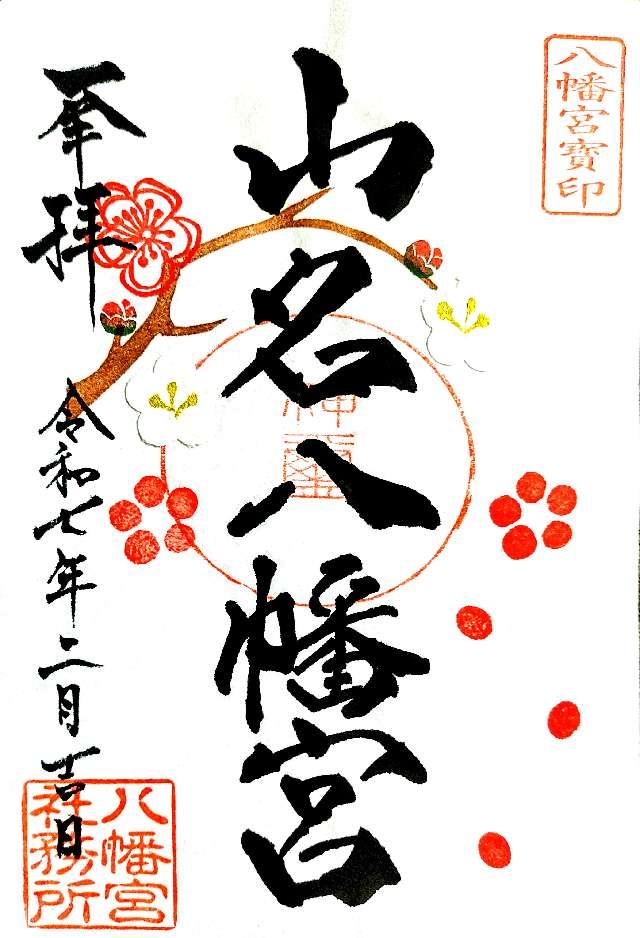 八幡宮寶印
山名八幡宮
神璽
奉拝
令和七年二月吉日
八幡宮
社務所